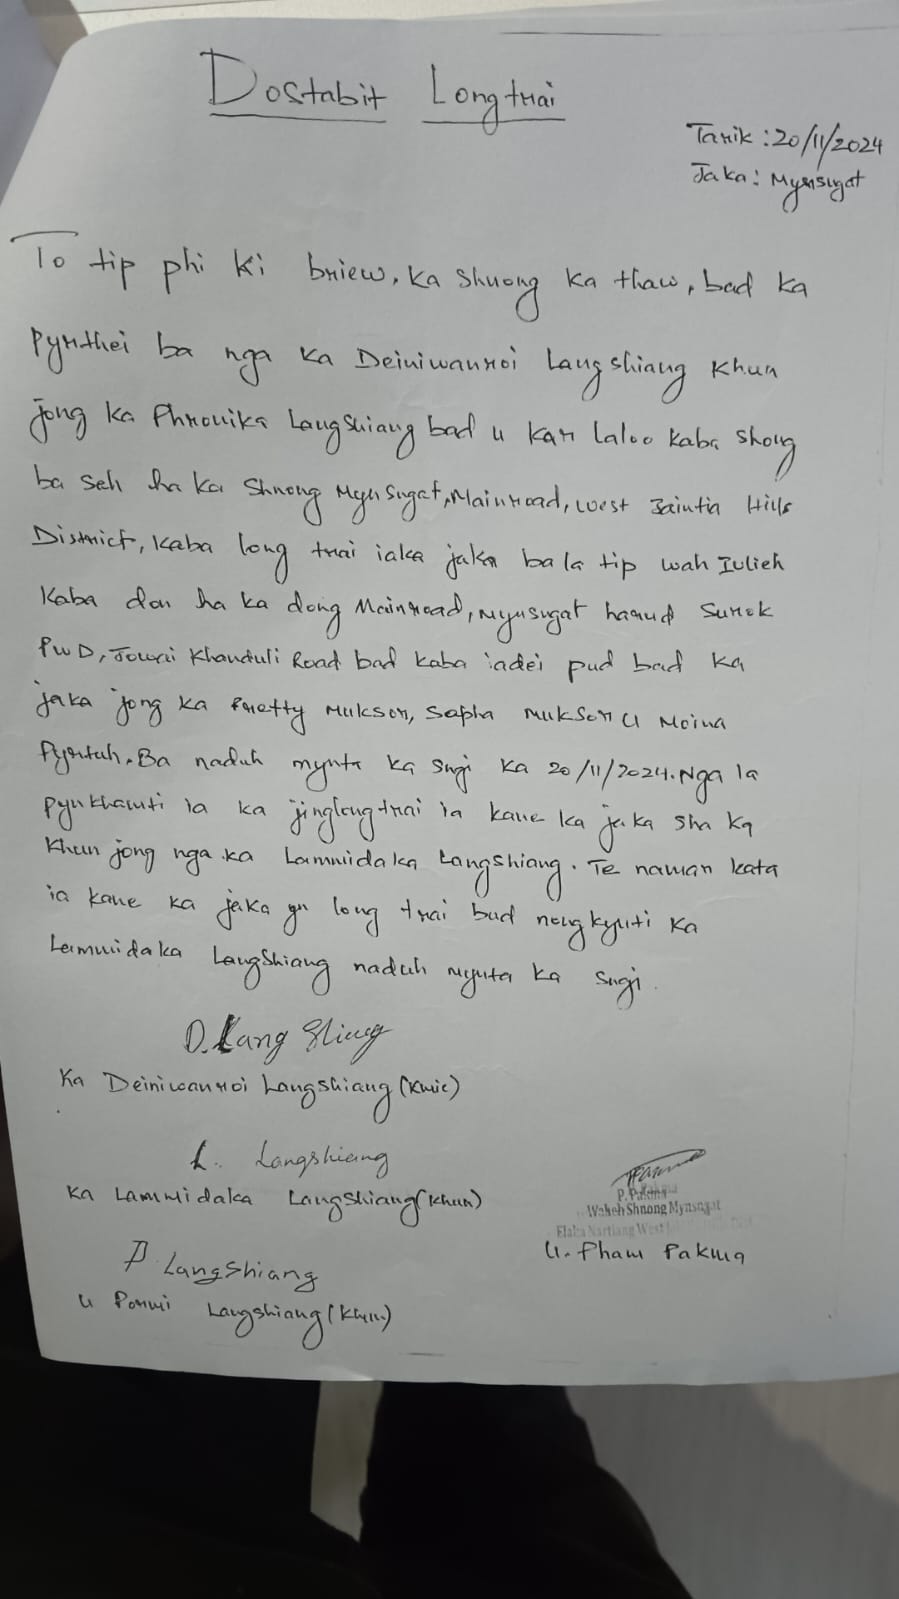 Dostabit Longtrai
Tarik : 20/11/2024
Jaka : Mynsngat
To tip phi ki briew, ka shnong ka thaw, bad ka
Pyrthei ba nga ka Deiniwanroi Langshiang khun
jong ka Phronika Langshiang bad u Kar Laloo kaba shong
ba seh ha ka Shnong Mynsngat, Mainroad, West Jaintia Hills
District, kaba long trai iaka jaka ba la tip wah Iulieh
kaba don ha ka dong Mainroad, Mynsngat harud Surok
PWD, Jowai Khanduli Road bad kaba iadei pud bad ka
jaka jong ka Pretty Muksor, Sapha Muksor u Moina
Pyrtuh. Ba naduh mynta ka sngi ka 20/11/2024. Nga la
pynkhamti ia ka jinglongtrai ia kane ka jaka sha ka
khun jong nga ka Lammidaka Langshiang. Te naman kata
ia kane ka jaka yn long trai bad nongkynti ka
Lammidaka Langshiang naduh mynta ka sngi.
D. Langshiang
Ka Deiniwanroi Langshiang (kmie)
L. Langshiang
Ka Lammidaka Langshiang (khun)
P. Langshiang
U Pormi Langshiang (khun)
P. Pakma
Waheh Shnong Mynsngat
Elaka Nartiang West
U. Pham Pakma